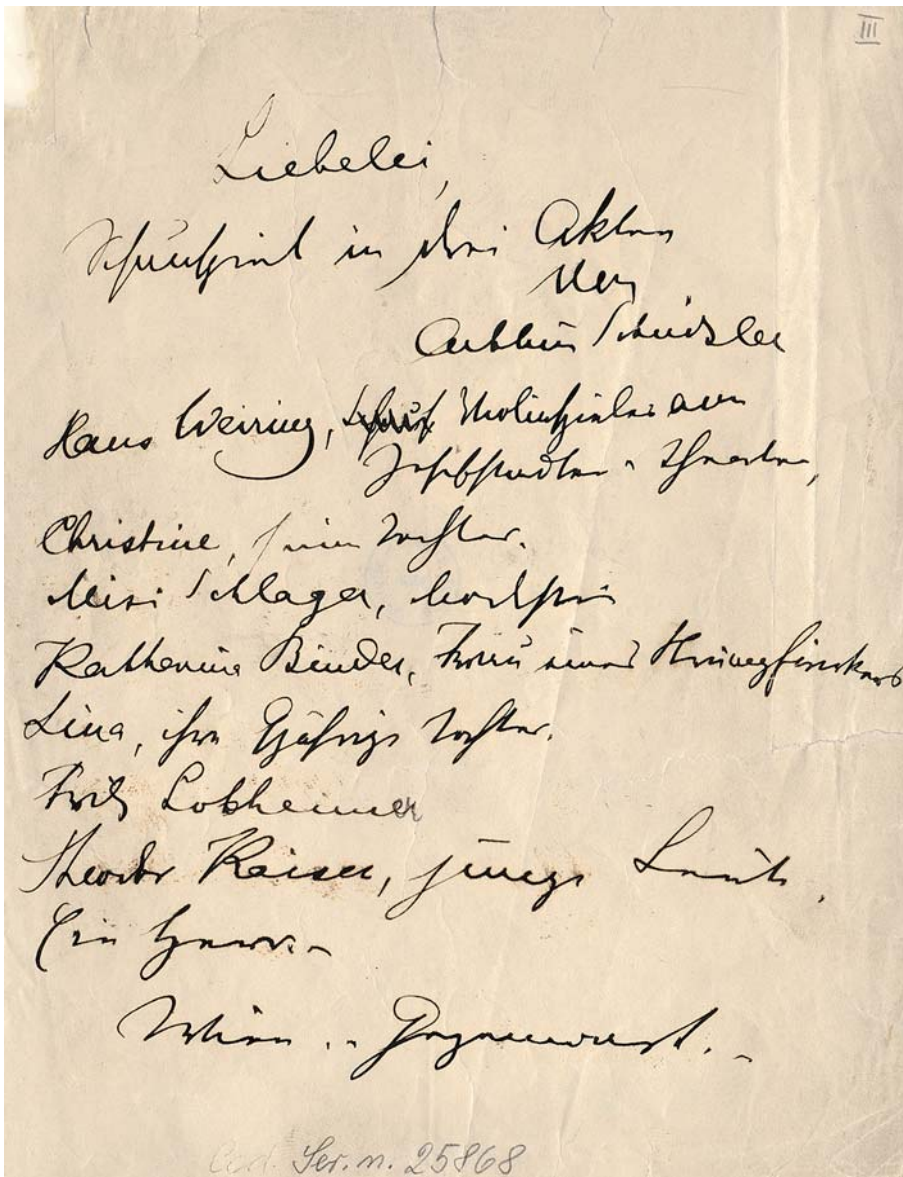 III
Liebelei,
Schauspiel in drei Akten
von
Arthur Schnitzler
Hans Weiring, Violinspieler am
Josefstädter-Theater,
Christine, seine Tochter.
Mizi Schlager, Modistin
Katharina Binder, Frau eines Strumpfwirkers
Lina, ihre 9jährige Tochter.
Fritz Lobheimer
Theodor Kaiser, junge Leute.
Ein Herr.–
Wien.– Gegenwart.–
Cod. Ser. n. 25868